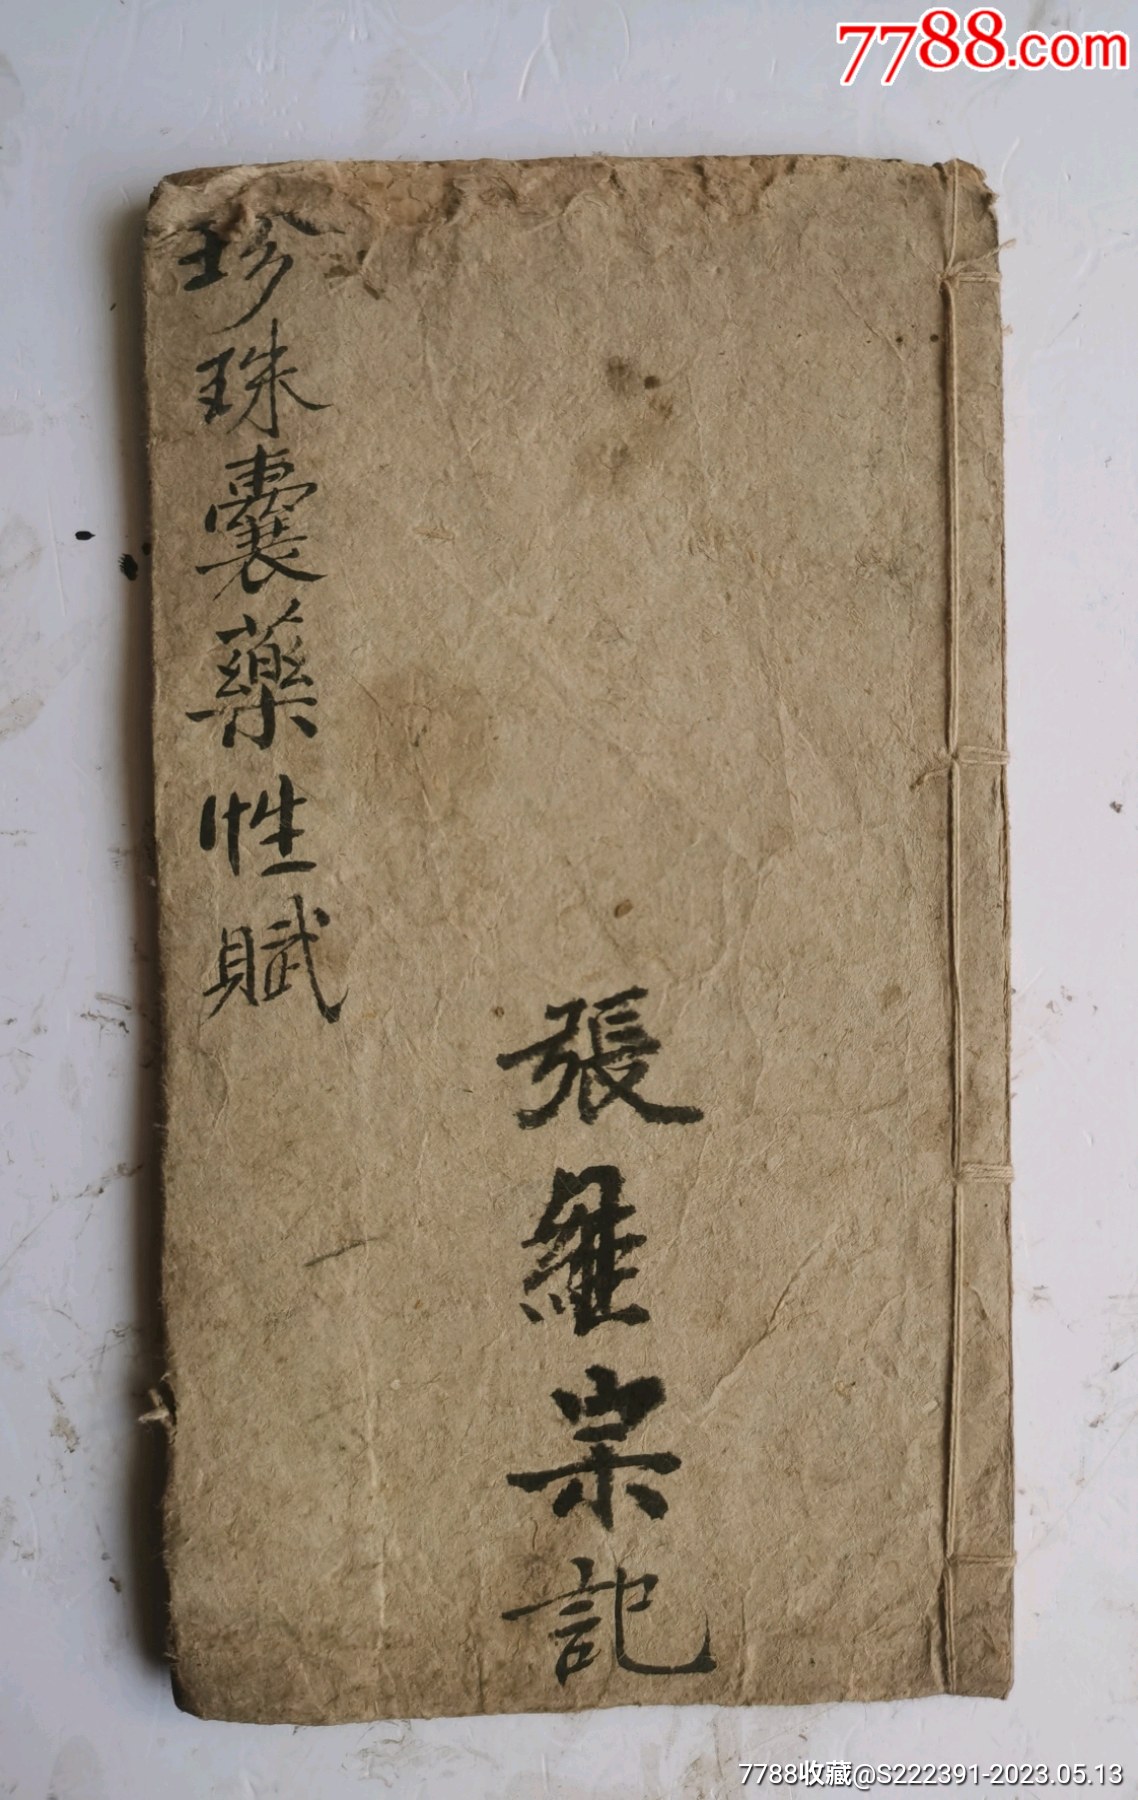 7788.com
珍珠囊藥性賦
張羅宗記
7788收藏@S222391-2023.05.13